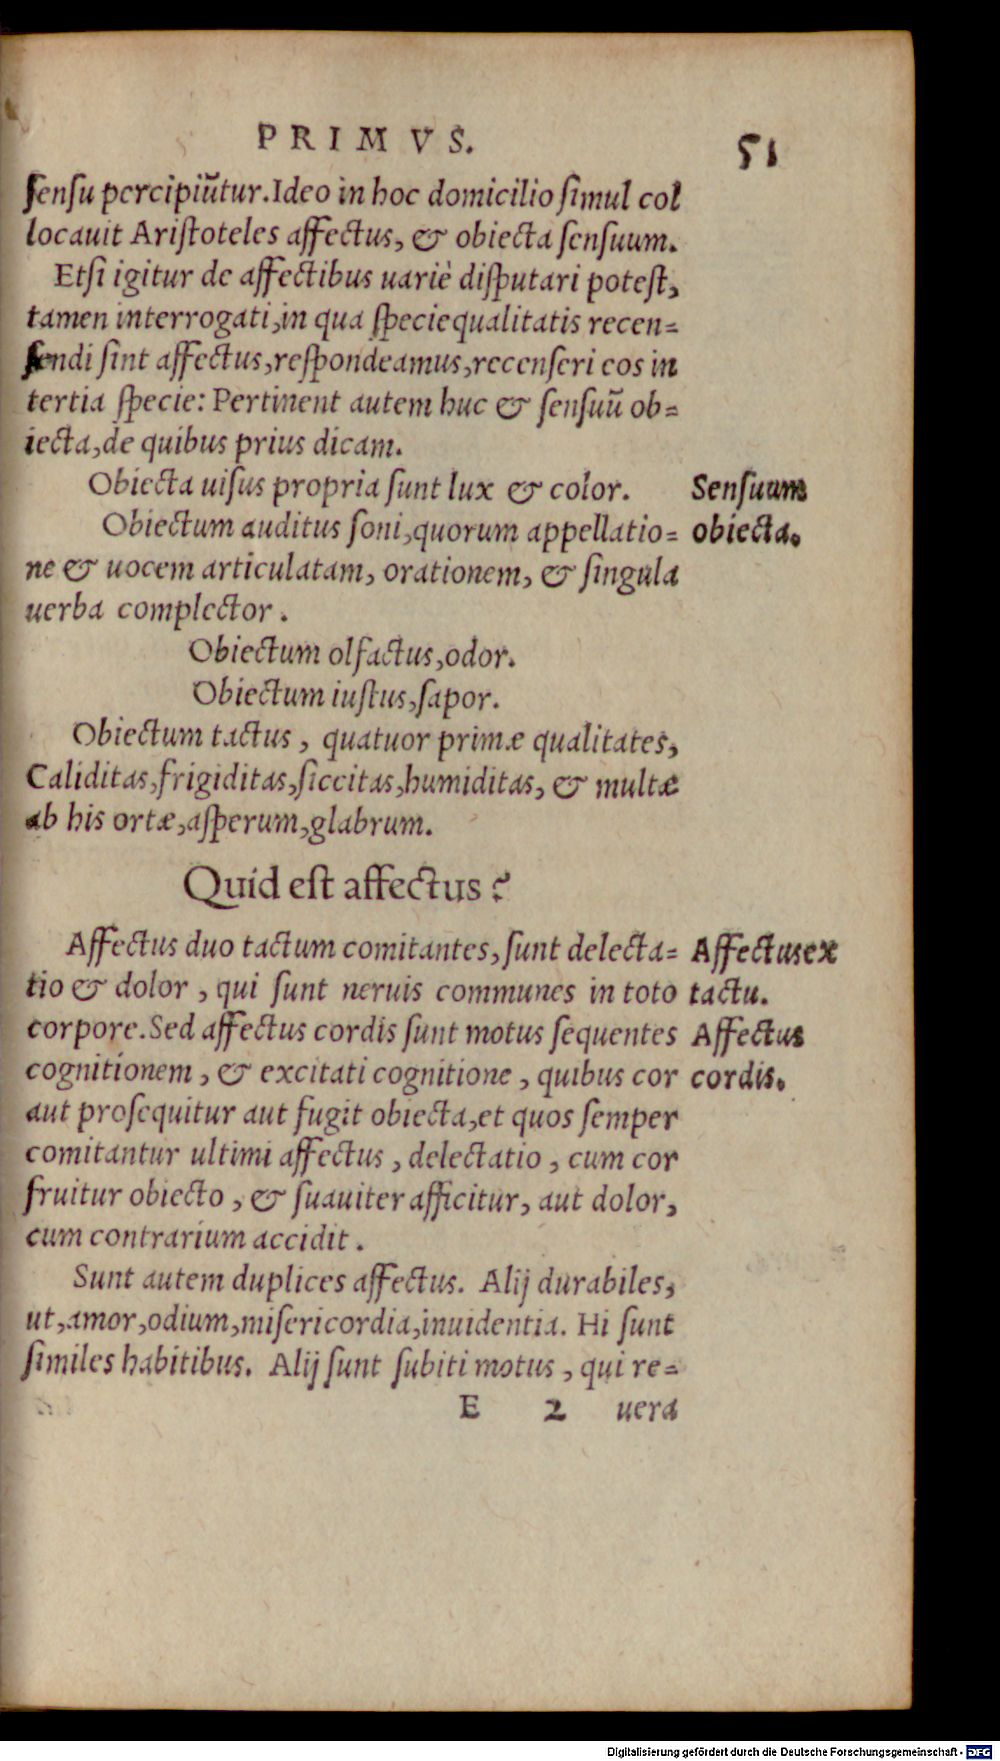 PRIMVS. 51
ſenſu percipiūtur. Ideo in hoc domicilio ſimul col
locauit Ariſtoteles affectus, & obiecta ſenſuum.
Etſi igitur de affectibus uariè diſputari poteſt,
tamen interrogati, in qua ſpecie qualitatis recen=
ſendi ſint affectus, reſpondeamus, recenſeri eos in
tertia ſpecie: Pertinent autem huc & ſenſuū ob=
iecta, de quibus prius dicam.
Obiecta uiſus propria ſunt lux & color. Senſuum
Obiectum auditus ſoni, quorum appellatio= obiecta.
ne & uocem articulatam, orationem, & ſingula
uerba complector.
Obiectum olfactus, odor.
Obiectum iuſtus, ſapor.
Obiectum tactus, quatuor primæ qualitates,
Caliditas, frigiditas, ſiccitas, humiditas, & multæ
ab his ortæ, aſperum, glabrum.
Quid eſt affectus?
Affectus duo tactum comitantes, ſunt delecta= Affectus ex
tio & dolor, qui ſunt neruis communes in toto tactu.
corpore. Sed affectus cordis ſunt motus ſequentes Affectus
cognitionem, & excitati cognitione, quibus cor cordis.
aut proſequitur aut fugit obiecta, et quos ſemper
comitantur ultimi affectus, delectatio, cum cor
fruitur obiecto, & ſuauiter afficitur, aut dolor,
cum contrarium accidit.
Sunt autem duplices affectus. Alij durabiles,
ut, amor, odium, miſericordia, inuidentia. Hi ſunt
ſimiles habitibus. Alij ſunt ſubiti motus, qui re=
E 2 uera
Digitalisierung gefördert durch die Deutsche Forschungsgemeinschaft - DFG